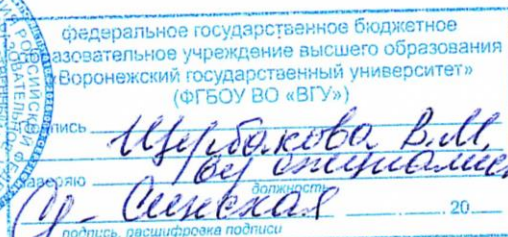 федеральное государственное бюджетное
образовательное учреждение высшего образования
«Воронежский государственный университет»
(ФГБОУ ВО «ВГУ»)
Подпись Щербакова В.М.
заверяю
должность
Синская 20
подпись, расшифровка подписи